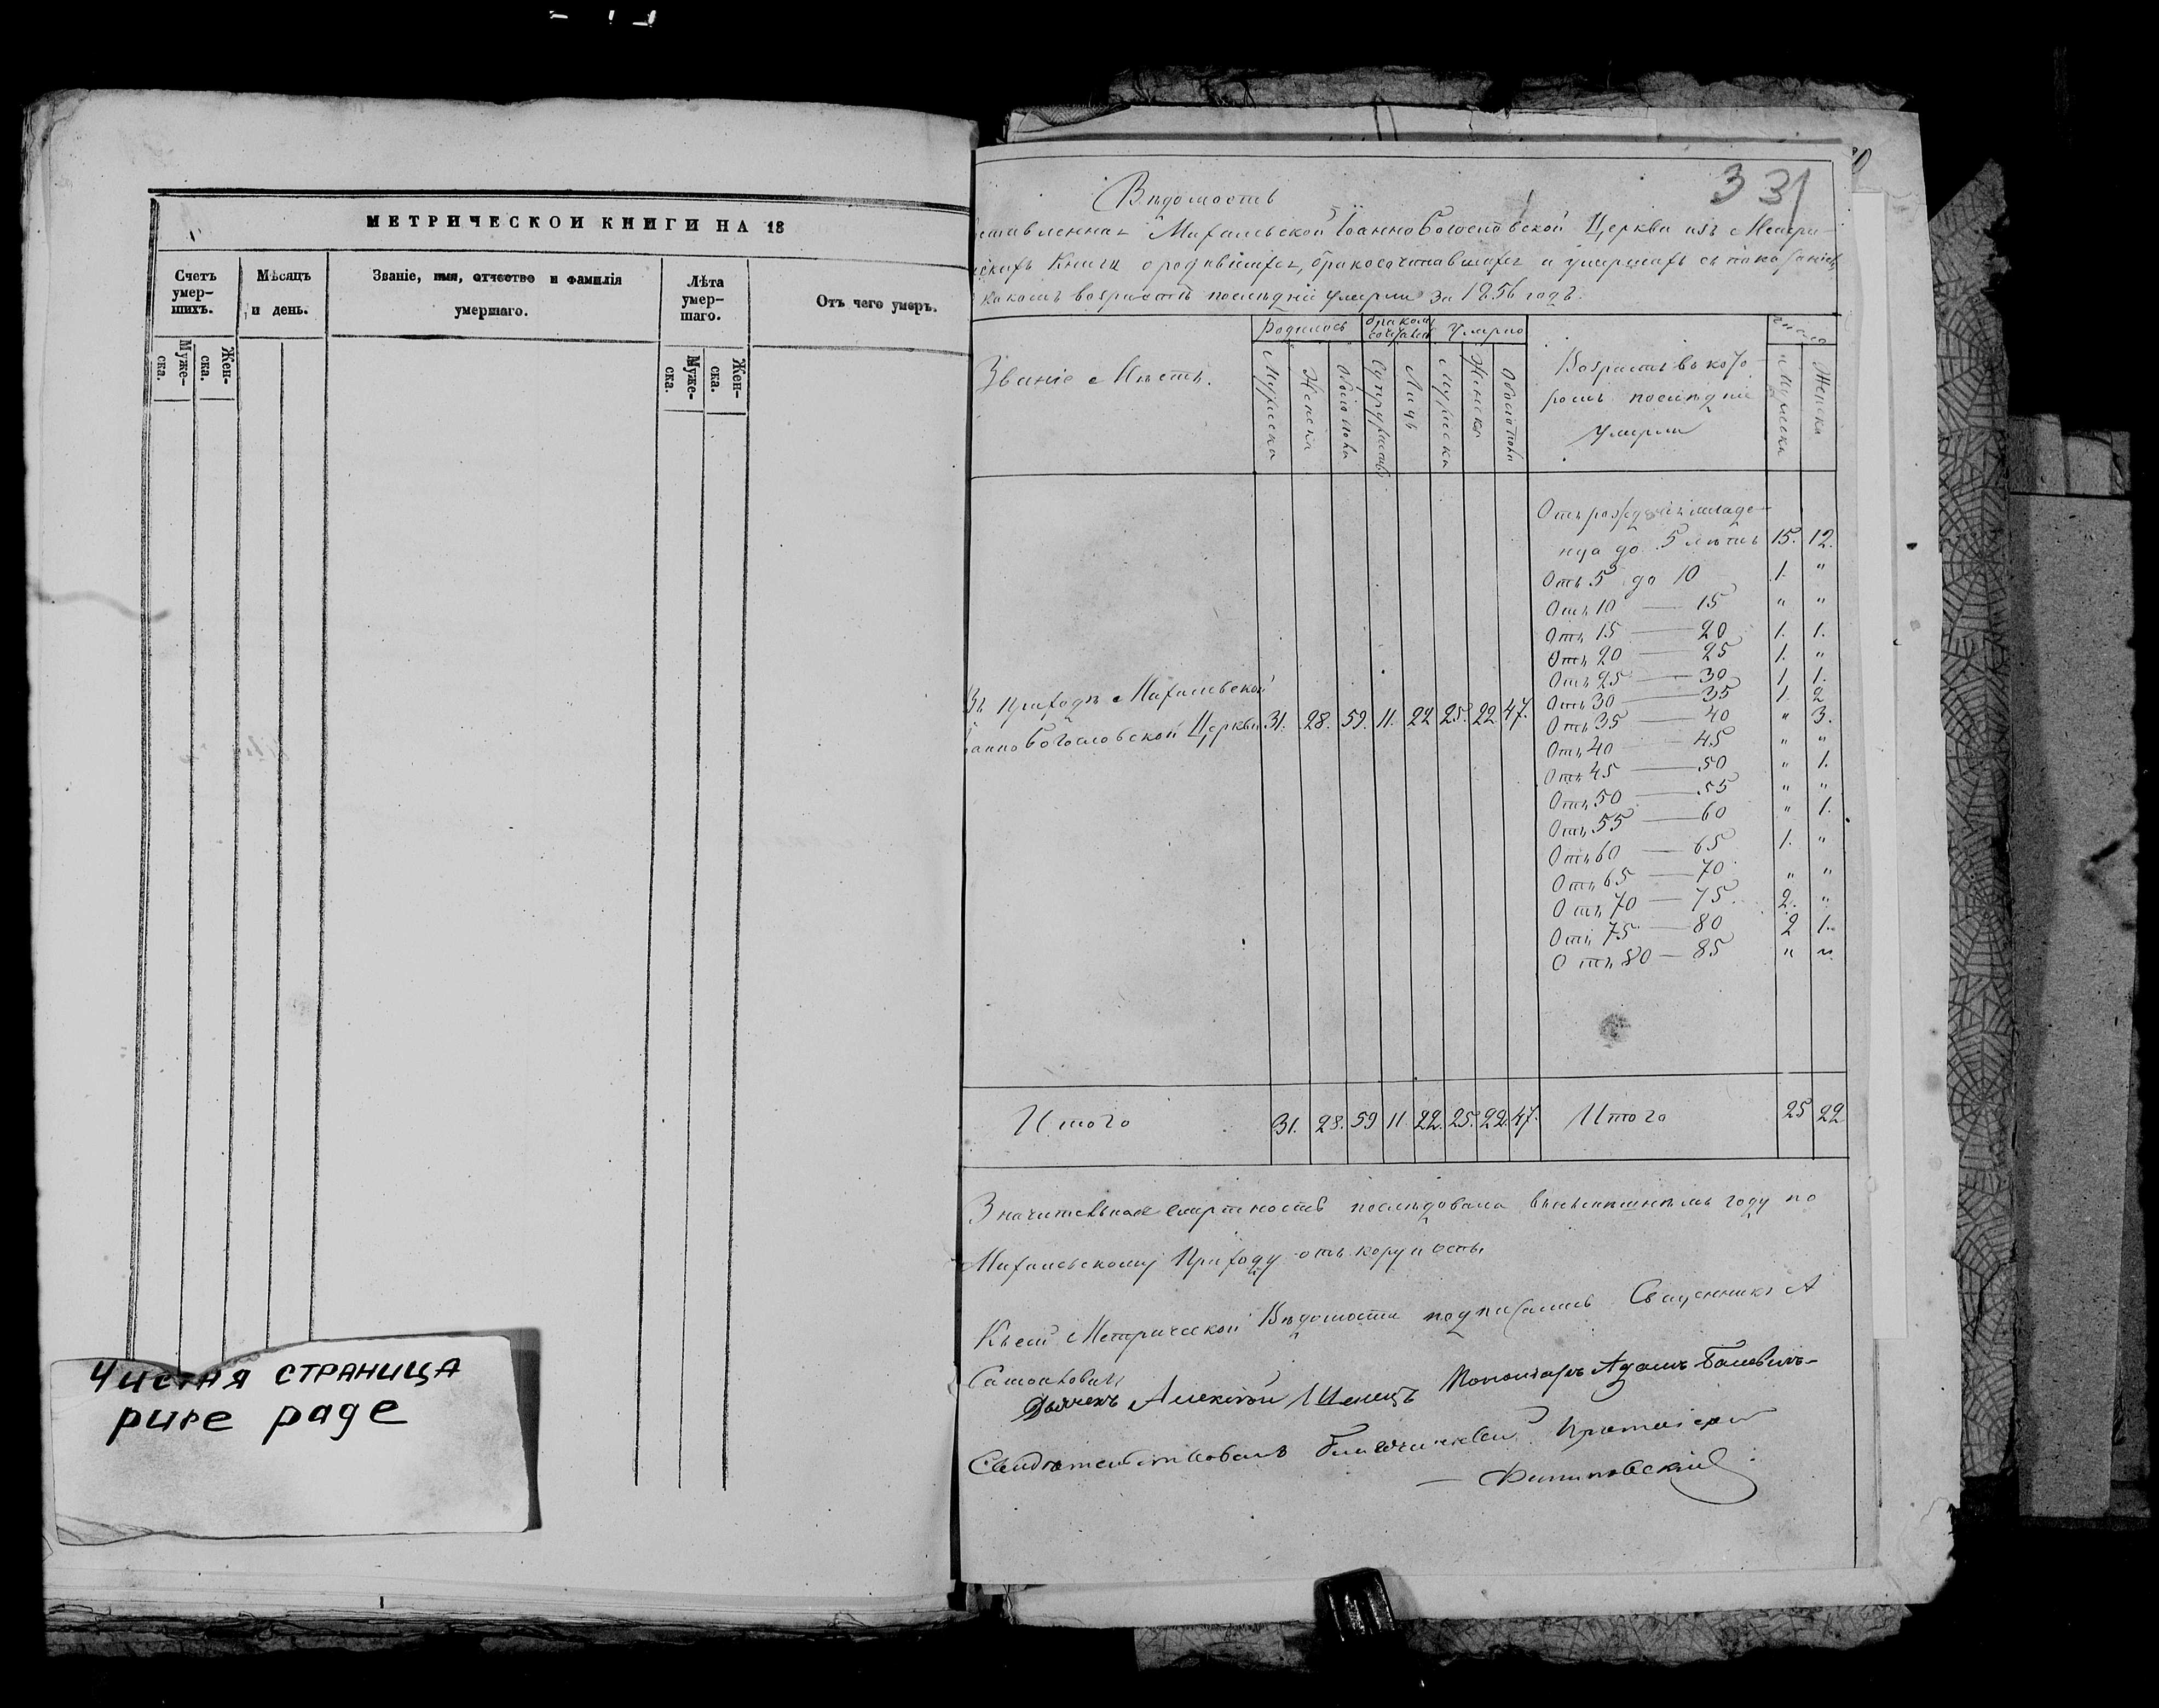 МЕТРИЧЕСКОЙ КНИГИ НА 18
Счетъ умер-шихъ.
Мѣсяцъ и день.
Званіе, имя, отчество и фамилія умершаго.
Лѣта умер-шаго.
Отъ чего умеръ.
Муже-ска.
Жен-ска.
Муже-ска.
Жен-ска.
Чистая страница
pure page
331
Вѣдомость
Михальской Іоанно Богословской Церкви изъ Метри-
Книги о родившихся, бракосочетавшихся и умершихъ съ показаніемъ
какомъ возрастѣ послѣдніе умерли за 1856 годъ.
Званіе Мѣстъ.
Родилось
Умерло
Мужеска
Женска
Обоего пола
Супружествъ
Лицъ
Мужеска
Женска
Обоего пола
Возрастъ въ кото-
ромъ послѣдніе
умерли
число
Мужеска
Женска
Отъ рожденія младе-
нца до 5 лѣтъ 15. 12.
Отъ 5 до 10 1. "
Отъ 10 — 15 " "
Отъ 15 — 20 1. 1.
Отъ 20 — 25 1. "
Отъ 25 — 30 1 1.
Отъ 30 — 35 1. 2
Отъ 35 — 40 " 3.
Отъ 40 — 45 " "
Отъ 45 — 50 " 1.
Отъ 50 — 55 " "
Отъ 55 — 60 " 1.
Отъ 60 — 65 1. "
Отъ 65 — 70 " "
Отъ 70 — 75 2. "
Отъ 75 — 80 2 1.
Отъ 80 — 85 " "
Въ Приходѣ Михальской
Іоанно Богословской Церкви 31. 28. 59. 11. 22 25. 22 47.
Итого 31. 28. 59 11 22. 25. 22. 47. Итого 25 22
Значительная смертность послѣдовала въ годъ по
Михальскому Приходу отъ
Къ сей Метрической Вѣдомости подписались Священникъ А
Дьячекъ Алексѣй Пономарь Адамъ
Свидѣтельствовалъ Благочинный Протоіерей